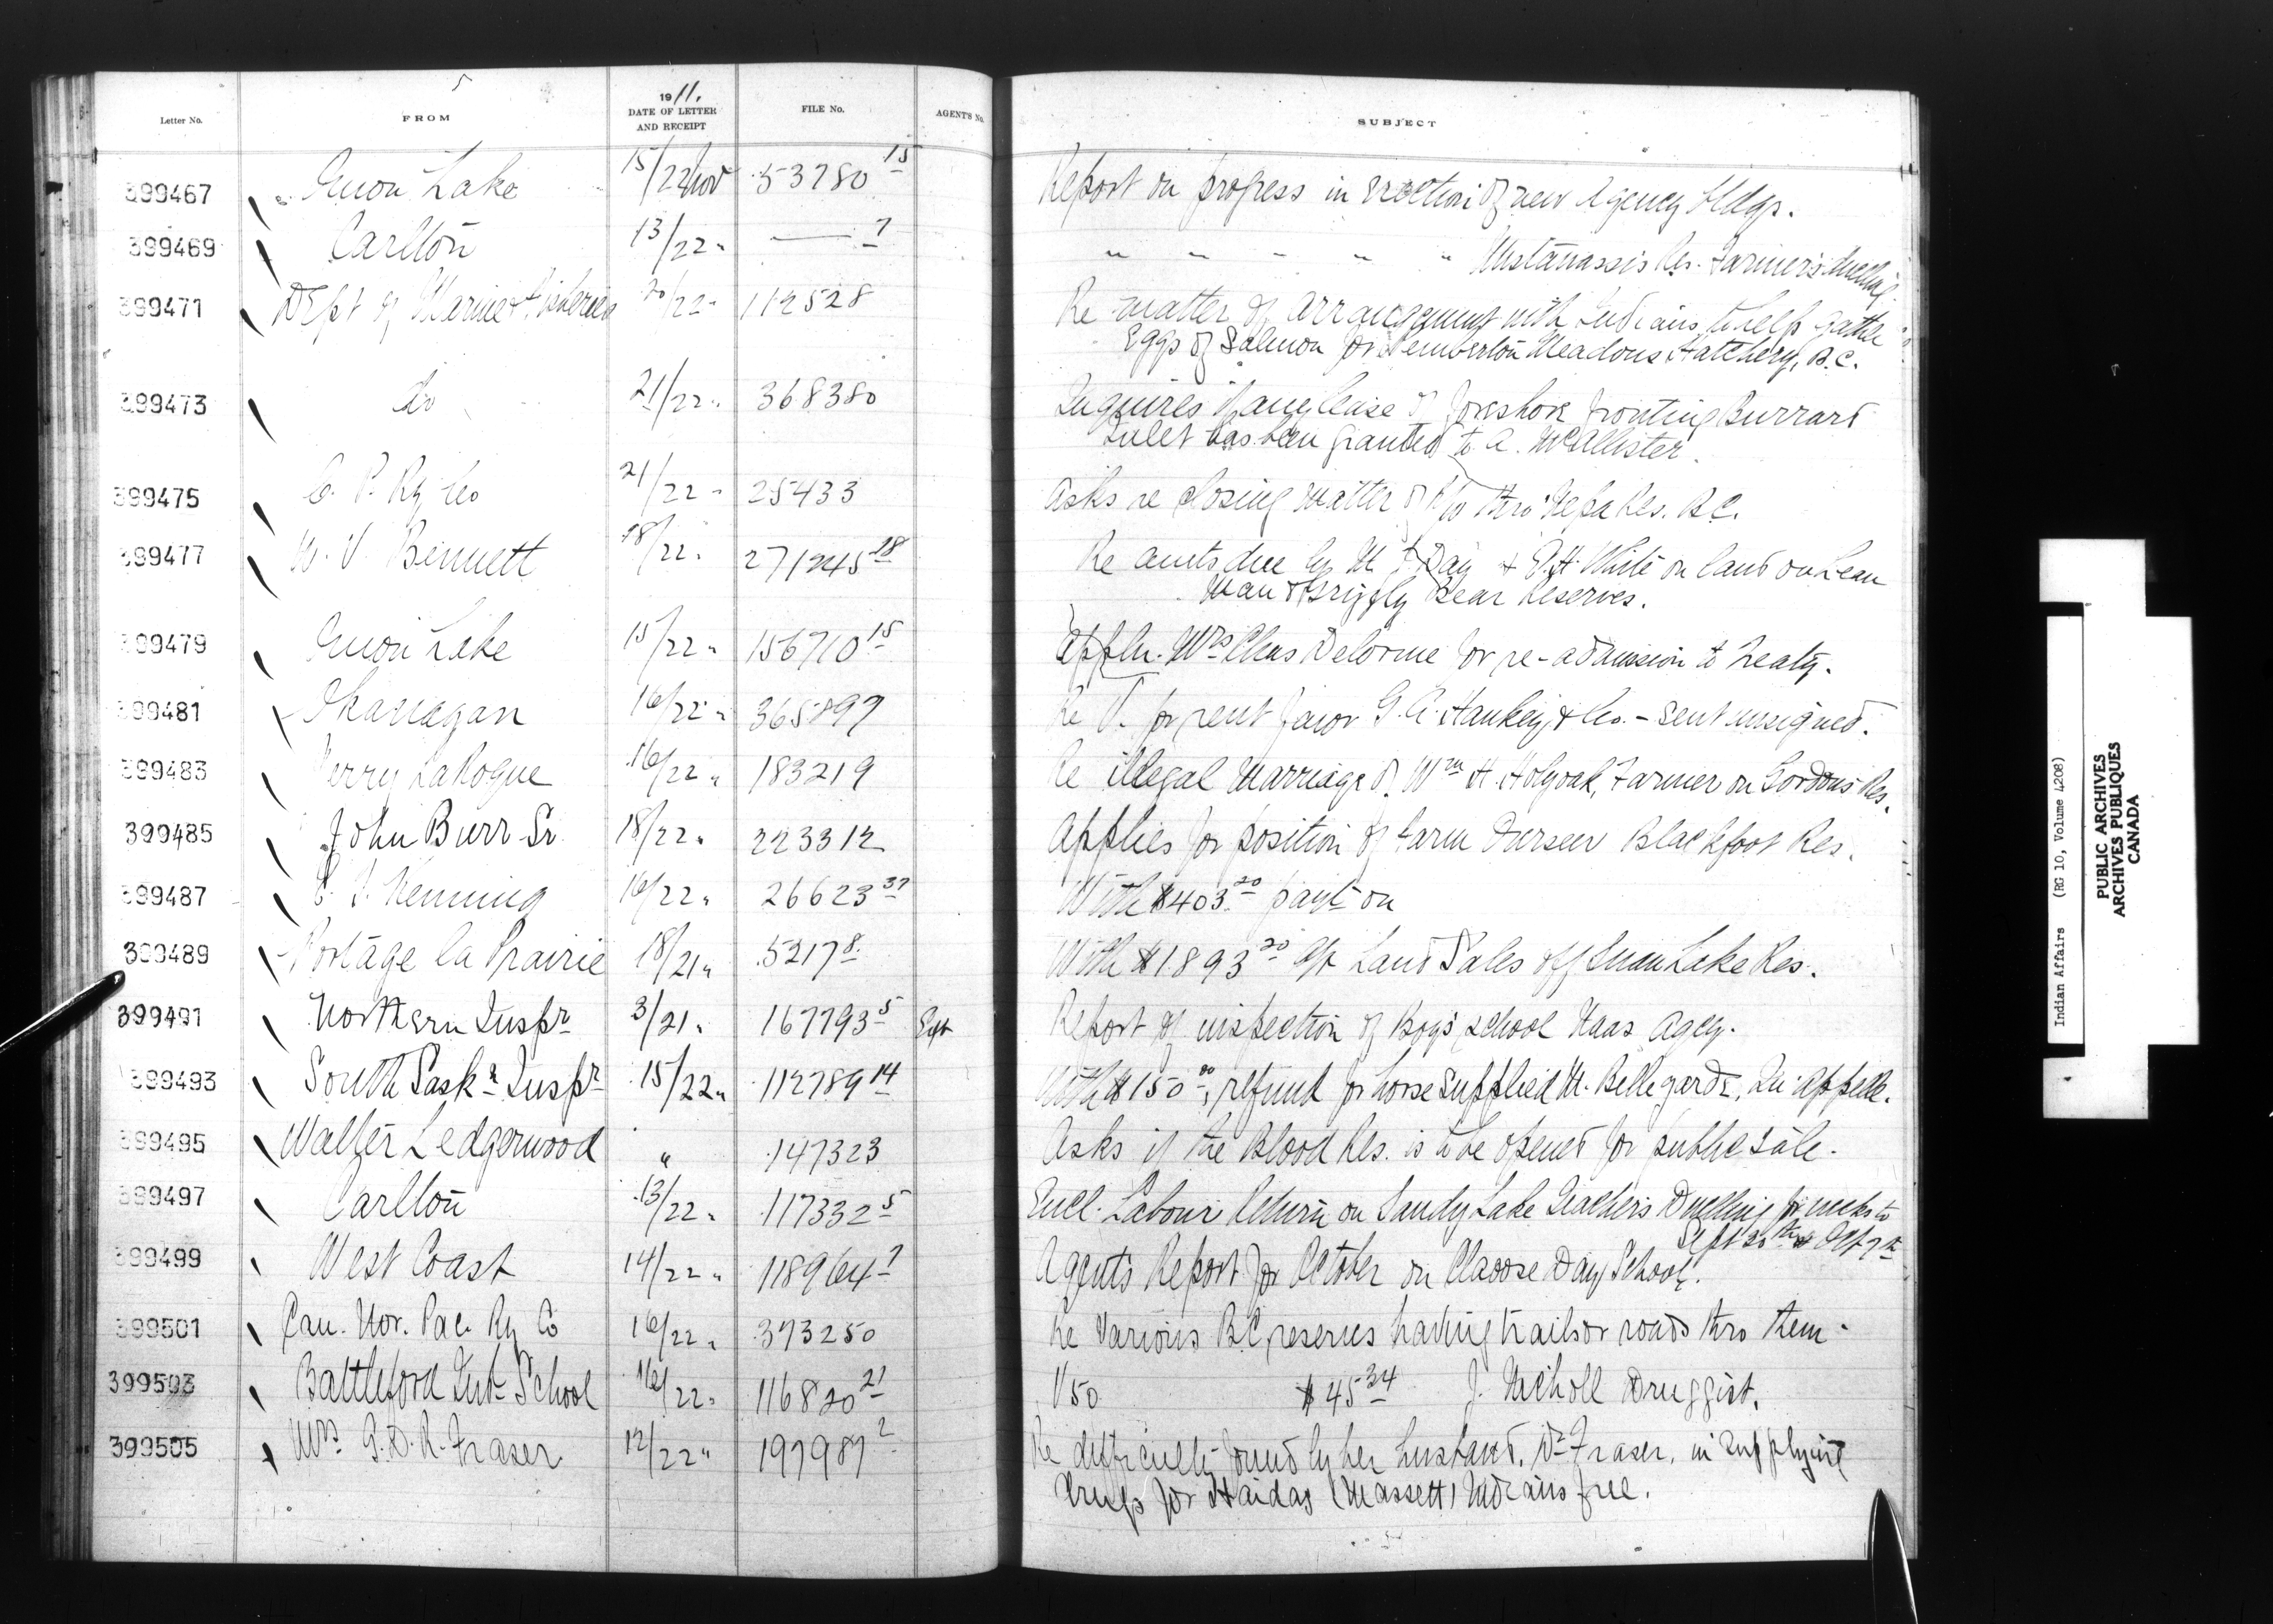 5
Letter No. FROM 1911. DATE OF LETTER AND RECEIPT FILE No. AGENT'S No. SUBJECT
399467 Onion Lake 15/22 Nov 53780 15 Report on progress in erection of new Agency Bldgs.
399469 Carlton 13/22 " — 7 " " " " " Mistawassis Res. Farmer's dwelling.
399471 Dept of Marine & Fisheries 20/22 " 112528 Re matter of arrangement with Indians to help gather
Eggs of Salmon for Pemberton Meadows Hatchery, B.C.
399473 do 21/22 " 368380 Inquires if any lease of foreshore fronting Burrard
Inlet has been granted to A. McAllister.
399475 C. P. Ry Co 21/22 " 25433 Asks re closing matter of R/W thro' Res. B.C.
399477 W. V. Bennett 18/22 " 271245 18 Re amts due by M Day & White on land on Lean
Man & Grizzly Bear Reserves.
399479 Onion Lake 15/22 " 156710 15 Appln. Mrs Chas Delorme for re-admission to treaty.
399481 Okanagan 16/22 " Re V. for rent favor G. A. Hankey & Co. - sent unsigned.
399483 LaRoque 16/22 " 183219 Re illegal marriage of Wm H. Holyoak, Farmer on Gordons Res.
399485 John Burr Sr. 18/22 " 223312 Applies for position of Farm Overseer Blackfoot Res.
399487 Henning 16/22 " 26623 37 With $403.20 paymt on
399489 Portage la Prairie 18/21 " 5217 8 With $1893 20 a/c Land Sales off Swan Lake Res.
399491 Northern Inspr 3/21 " 167793 5 Sept Report of inspection of Boys school Naas Agcy.
399493 South Sask n Inspr 15/22 " 112789 14 With $150 00, refund for horse supplied M. Bellegarde, Qu'Appelle.
399495 Walter Ledgerwood " 147323 Asks if the Blood Res. is to be opened for public sale.
399497 Carlton 13/22 " 117332 5 Encl. Labour Return on Sandy Lake Teacher's Dwelling for weeks to
Sept 30th & Oct 7th
399499 West Coast 14/22 " 118964 1 Agent's Report for October on Claoose Day School.
399501 Can. Nor. Pac. Ry Co 16/22 " 373250 Re various B.C. reserves having trails or roads thro them.
399503 Battleford Ind. School 16/22 " 116820 21 V 50 $45 34 J. Nicholl Druggist.
399505 Mrs Fraser 12/22 " 197987 2 Re difficulty found by her husband, Dr Fraser, in supplying
drugs for Haidas (Massett) Indians free.
Indian Affairs (RG 10, Volume 4208)
PUBLIC ARCHIVES
ARCHIVES PUBLIQUES
CANADA